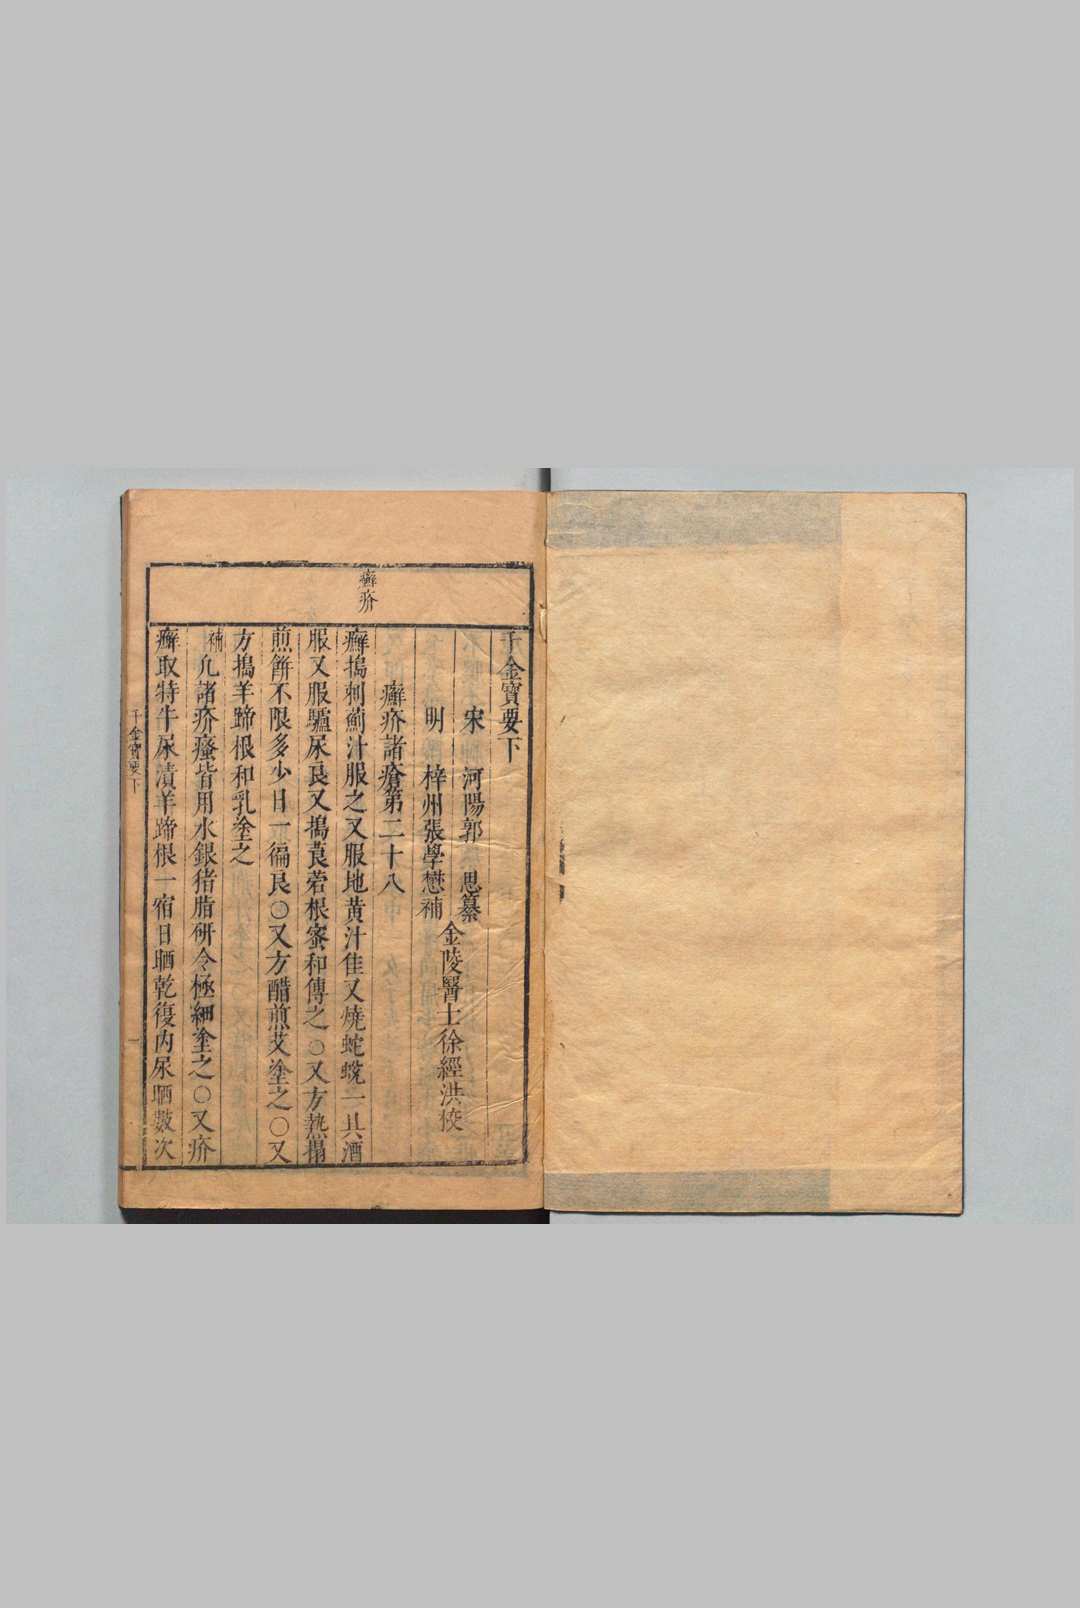 千金寶要下
宋 河陽郭 思纂
明 梓州張學懋補
金陵醫士徐經洪挍
癬疥諸瘡第二十八
癬疥
癬搗刺薊汁服之又服地黃汁佳又燒蛇蛻一具酒
服又服驢尿良又搗莨菪根蜜和傅之○又方熱搨
煎餅不限多少日一徧良○又方醋煎艾塗之○又
方搗羊蹄根和乳塗之
補凡諸疥瘙皆用水銀猪脂研令極細塗之○又疥
癬取特牛尿漬羊蹄根一宿日晒乾復内尿晒數次
千金寶要下
一